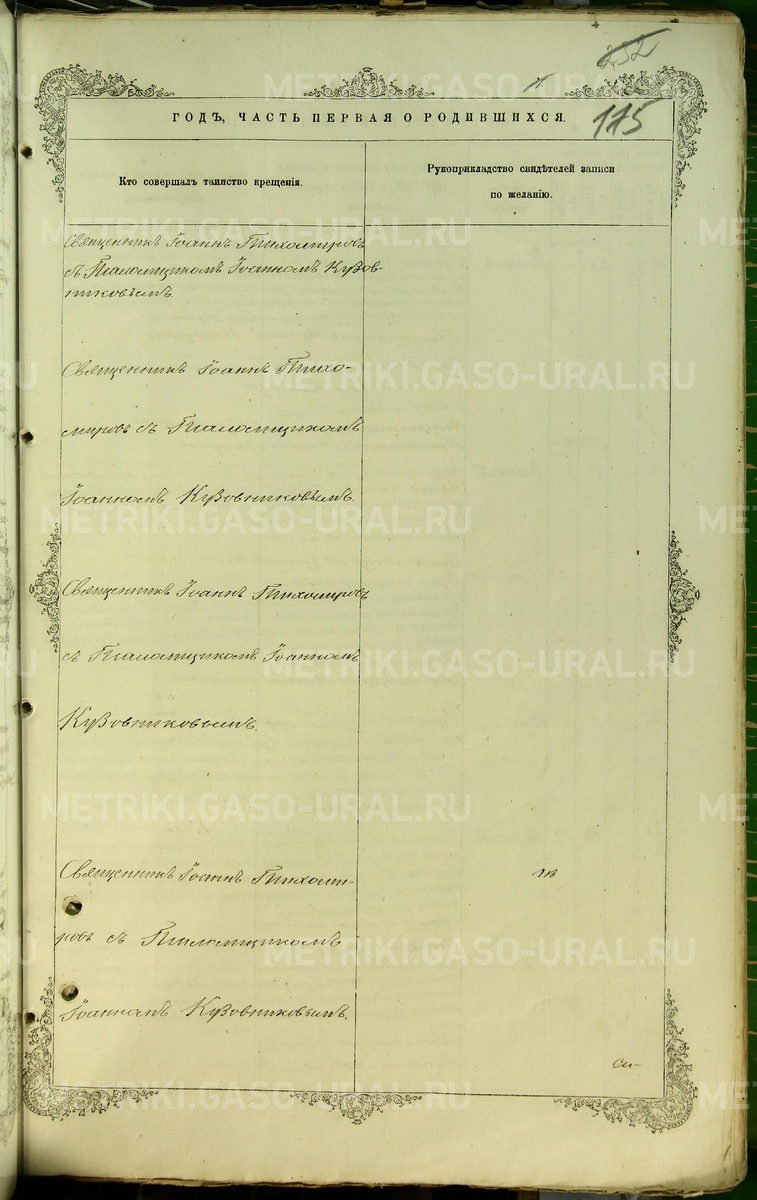 252
175
ГОДЪ, ЧАСТЬ ПЕРВАЯ О РОДИВШИХСЯ.
Кто совершалъ таинство крещенія.
Рукоприкладство свидѣтелей записи
по желанію.
Священникъ Іоаннъ Тихомировъ
съ Псаломщикомъ Іоанномъ Кузов-
никовымъ.
Священникъ Іоаннъ Тихо-
мировъ съ Псаломщикомъ
Іоанномъ Кузовниковымъ.
Священникъ Іоаннъ Тихомировъ
съ Псаломщикомъ Іоанномъ
Кузовниковымъ.
Священникъ Іоаннъ Тихоми-
ровъ съ Псаломщикомъ
Іоанномъ Кузовниковымъ.
Си-
METRIKI.GASO-URAL.RU